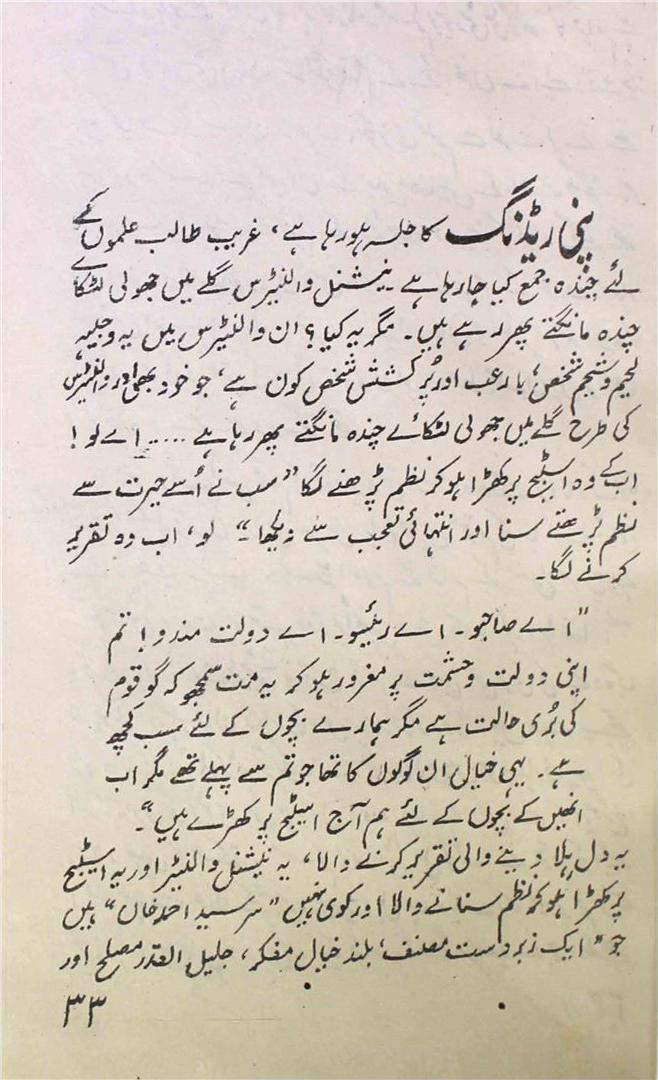 پنی ریڈنگ کا جلسہ ہورہا ہے، غریب طالب علموں کے
لئے چندہ جمع کیا جارہا ہے نیشنل والنٹیرس گلے میں جھولی لٹکائے
چندہ مانگتے پھر رہے ہیں۔ مگر یہ کیا؟ ان والنٹیرس میں یہ وجیہہ
لحیم و شحیم شخص، بارعب اور پُرکشش شخص کون ہے، جو خود بھی اور والنٹیرس
کی طرح گلے میں جھولی لٹکائے چندہ مانگتے پھر رہا ہے ..... اے لو!
اب کے وہ اسٹیج پر کھڑا ہوکر نظم پڑھنے لگا "سب نے اُسے حیرت سے
نظم پڑھتے سنا اور انتہائی تعجب سے دیکھا" لو، اب وہ تقریر
کرنے لگا۔
"اے صاحبو۔ اے رئیسو۔ اے دولت مندو! تم
اپنی دولت و حشمت پر مغرور ہوکر یہ مت سمجھو کہ گو قوم
کی بُری حالت ہے مگر ہمارے بچوں کے لئے سب کچھ
ہے۔ یہی خیال ان لوگوں کا تھا جو تم سے پہلے تھے مگر اب
انھیں کے بچوں کے لئے ہم آج اسٹیج پر کھڑے ہیں"۔
یہ دل ہلا دینے والی تقریر کرنے والا، یہ نیشنل والنٹیر اور یہ اسٹیج
پر کھڑا ہوکر نظم سنانے والا اور کوی نہیں "سرسید احمد خان" ہیں
جو "ایک زبردست مصنف، بلند خیال مفکر، جلیل القدر مصلح اور
۳۳